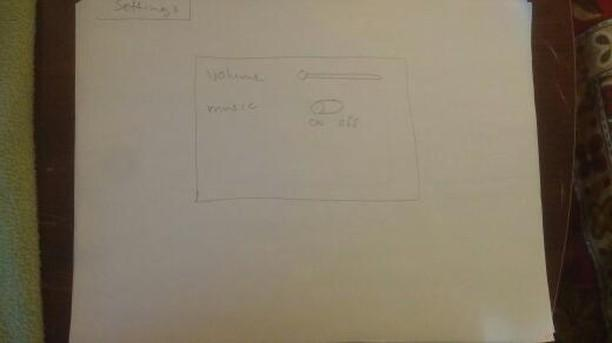 Settings
Volume
music
on off